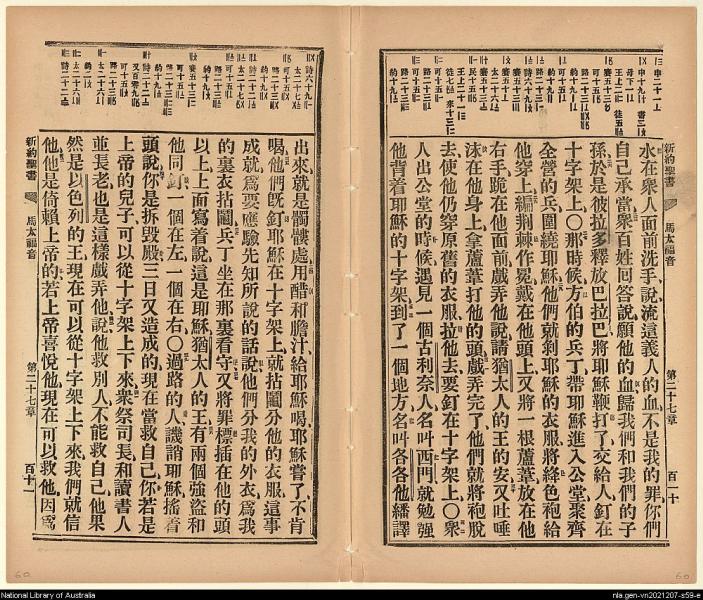 新約聖書
馬太福音
第二十七章
百一十
水在衆人面前洗手說流這義人的血不是我的罪你們
自己承當衆百姓回答說願他的血歸我們和我們的子
孫於是彼拉多釋放巴拉巴將耶穌鞭打了交給人釘在
十字架上〇那時候方伯的兵丁帶耶穌進入公堂聚齊
全營的兵圍繞耶穌他們就剝耶穌的衣服將絳色袍給
他穿上編荆棘作冕戴在他頭上又將一根蘆葦放在他
右手跪在他面前戲弄他說請猶太人的王的安又吐唾
沫在他身上拿蘆葦打他的頭戲弄完了他們就將袍脫
去使他仍穿原舊的衣服拉他去要釘在十字架上〇衆
人出公堂的時候遇見一個古利奈人名叫西門就勉强
他背着耶穌的十字架到了一個地方名叫各各他繙譯
出來就是髑髏處用醋和膽汁給耶穌喝耶穌嘗了不肯
喝他們旣釘耶穌在十字架上就拈鬮分他的衣服這事
成就爲要應驗先知所說的話說他們分我的外衣爲我
的裏衣拈鬮兵丁坐在那裏看守又將罪標插在他的頭
以上上面寫着說這是耶穌猶太人的王有兩個強盜和
他同釘一個在左一個在右〇過路的人譏誚耶穌搖着
頭說你是拆毀殿三日又造成的現在當救自己你若是
上帝的兒子可以從十字架上下來衆祭司長和讀書人
並長老也是這樣戲弄他說他救別人不能救自己他果
然是以色列的王現在可以從十字架上下來我們就信
他他是倚賴上帝的若上帝喜悅他現在可以救他因爲
新約聖書
馬太福音
第二十七章
百十一
60
60
National Library of Australia
nla.gen-vn2021207-s59-e